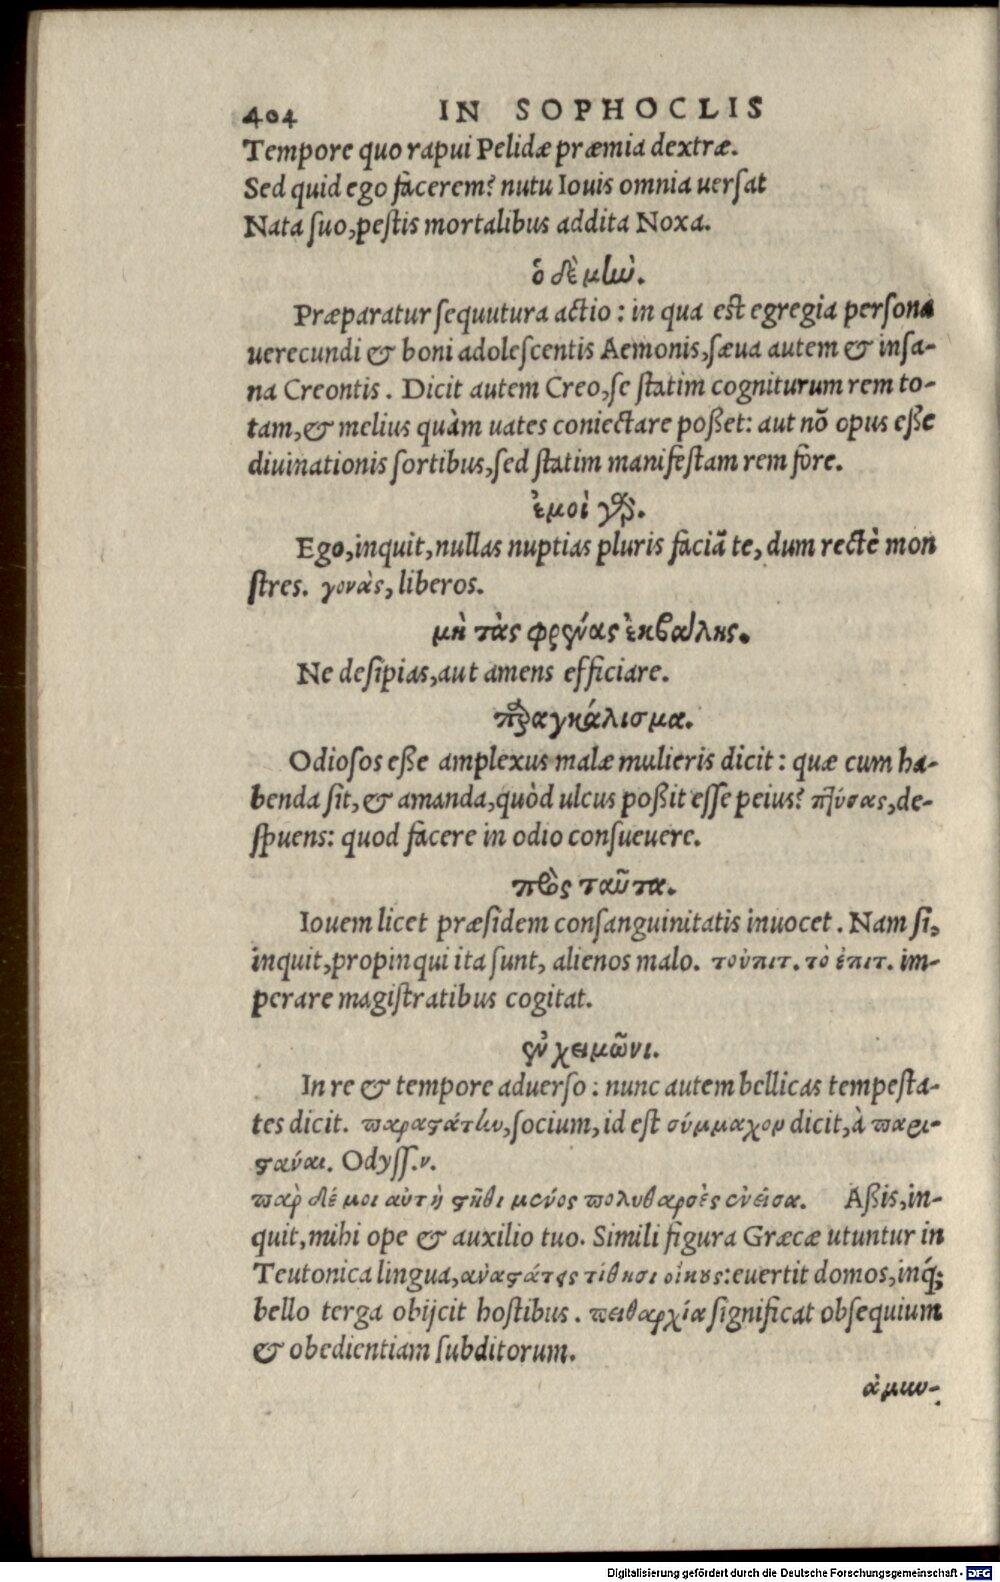 404 IN SOPHOCLIS
Tempore quo rapui Pelidæ præmia dextræ.
Sed quid ego facerem? nutu Iouis omnia uersat
Nata suo, pestis mortalibus addita Noxa.
ὁ δὲ μὴν.
Præparatur sequutura actio: in qua est egregia persona
uerecundi & boni adolescentis Aemonis, sæua autem & insa-
na Creontis. Dicit autem Creo, se statim cogniturum rem to-
tam, & melius quàm uates coniectare poßet: aut nō opus eße
diuinationis sortibus, sed statim manifestam rem fore.
ἐμοὶ γὰρ.
Ego, inquit, nullas nuptias pluris faciā te, dum rectè mon
stres. γονὰς, liberos.
μὴ τὰς φρένας ἐκβάλῃς.
Ne desipias, aut amens efficiare.
παραγκάλισμα.
Odiosos eße amplexus malæ mulieris dicit: quæ cum ha-
benda sit, & amanda, quòd ulcus poßit esse peius? πτύσας, de-
spuens: quod facere in odio consueuere.
πρὸς ταῦτα.
Iouem licet præsidem consanguinitatis inuocet. Nam si,
inquit, propinqui ita sunt, alienos malo. τοὐπιτ. τὸ ἐπιτ. im-
perare magistratibus cogitat.
ἐν χειμῶνι.
In re & tempore aduerso: nunc autem bellicas tempesta-
tes dicit. παραστάτην, socium, id est σύμμαχον dicit, à παρι-
στάναι. Odyss. ν.
πὰρ δέ μοι αὐτὴ στῆθι μένος πολυθαρσὲς ἐνεῖσα. Aßis, in-
quit, mihi ope & auxilio tuo. Simili figura Græcæ utuntur in
Teutonica lingua, ἀναστάτες τίθησι οἴκους: euertit domos, inq́;
bello terga obijcit hostibus. πειθαρχία significat obsequium
& obedientiam subditorum.
ἀμιω-